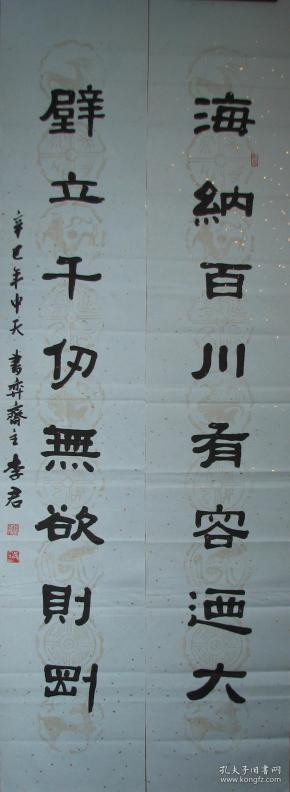 海納百川有容迺大
壁立千仞無欲則剛
辛巳年中天 書弈齋主 李君
孔夫子旧书网